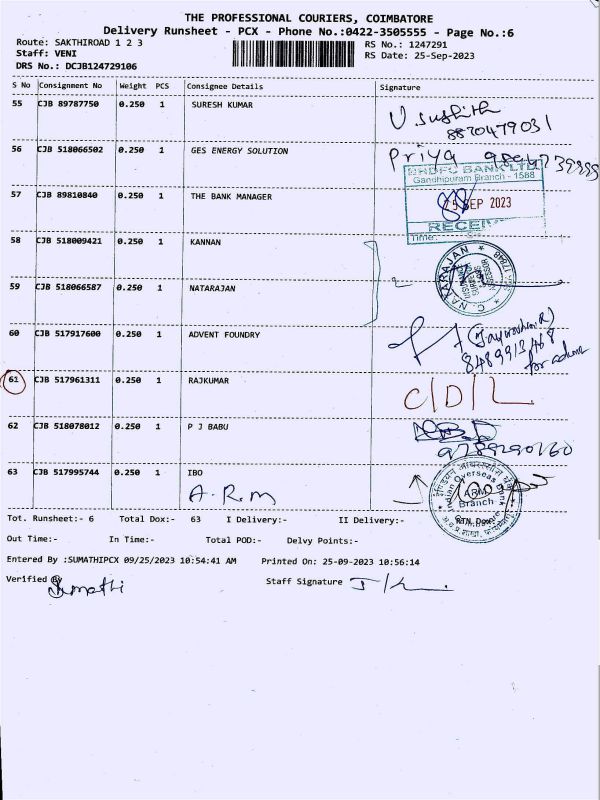 THE PROFESSIONAL COURIERS, COIMBATORE
Delivery Runsheet - PCX - Phone No.:0422-3505555 - Page No.:6
Route: SAKTHIROAD 1 2 3
RS No.: 1247291
Staff: VENI
RS Date: 25-Sep-2023
DRS No.: DCJB124729106
S No Consignment No Weight PCS Consignee Details Signature
55 CJB 89787750 0.250 1 SURESH KUMAR
8870479031
56 CJB 518066502 0.250 1 GES ENERGY SOLUTION Priya
HDFC BANK LTD
Gandhipuram Branch - 1588
57 CJB 89810840 0.250 1 THE BANK MANAGER
25 SEP 2023
RECEIV
Time:
58 CJB 518009421 0.250 1 KANNAN
C. NATARAJAN
59 CJB 518066587 0.250 1 NATARAJAN
60 CJB 517917600 0.250 1 ADVENT FOUNDRY
8489913468
61 CJB 517961311 0.250 1 RAJKUMAR C/D/L
62 CJB 518078012 0.250 1 P J BABU
9789290760
63 CJB 517995744 0.250 1 IBO
A.R.M
Indian Overseas Bank
ARM
Branch
Tot. Runsheet:- 6 Total Dox:- 63 I Delivery:- II Delivery:- RTN Dox:-
Out Time:- In Time:- Total POD:- Delvy Points:-
Entered By :SUMATHIPCX 09/25/2023 10:54:41 AM Printed On: 25-09-2023 10:56:14
Verified By Sumathi Staff Signature